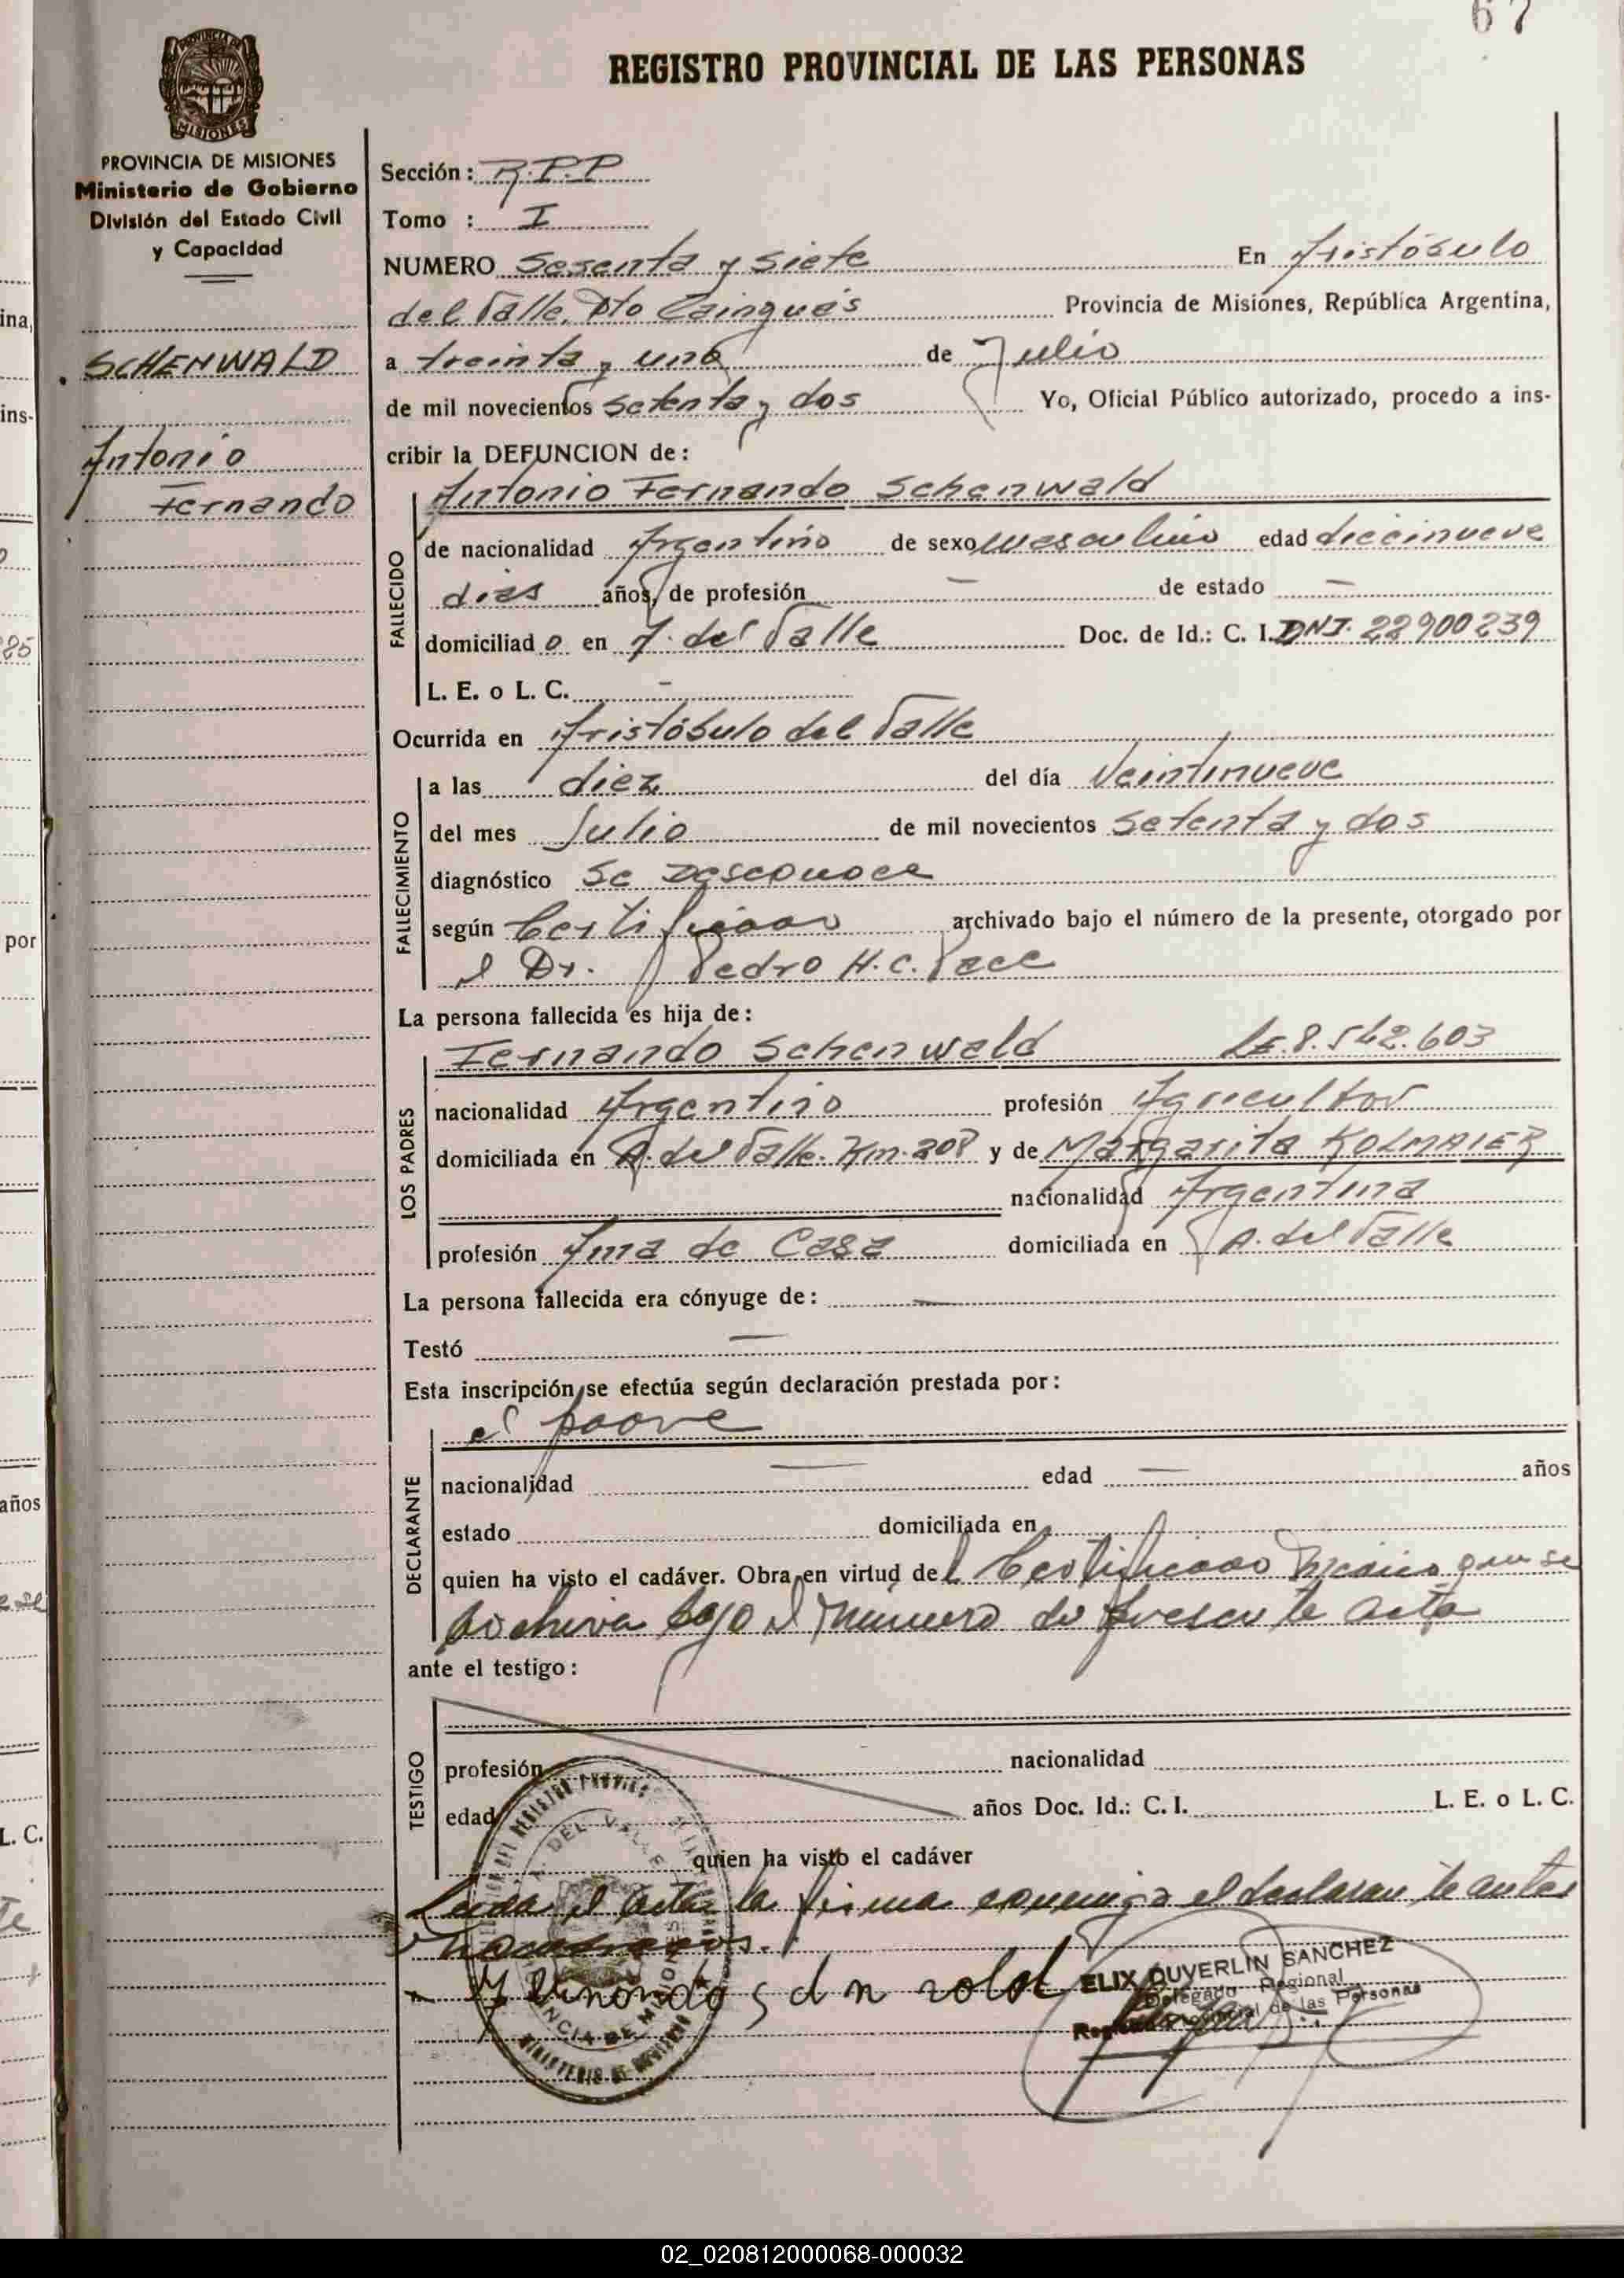 67
REGISTRO PROVINCIAL DE LAS PERSONAS
PROVINCIA DE MISIONES
Ministerio de Gobierno
División del Estado Civil
y Capacidad
SCHENWALD
Antonio
Fernando
Sección: R.P.P
Tomo : I
NUMERO Sesenta y siete En Aristóbulo
del Valle, Dto Cainguás Provincia de Misiones, República Argentina,
a treinta y uno de Julio
de mil novecientos setenta y dos Yo, Oficial Público autorizado, procedo a ins-
cribir la DEFUNCION de:
FALLECIDO
Antonio Fernando Schenwald
de nacionalidad Argentino de sexo masculino edad diecinueve
dias años, de profesión — de estado —
domiciliad o en A. del Valle Doc. de Id.: C. I. DNI. 22900239
L. E. o L. C. -
Ocurrida en Aristóbulo del Valle
FALLECIMIENTO
a las diez del día Veintinueve
del mes Julio de mil novecientos setenta y dos
diagnóstico Se Desconoce
según Certificado archivado bajo el número de la presente, otorgado por
el Dr. Pedro H. C. Pace
La persona fallecida es hija de:
LOS PADRES
Fernando Schenwald LE. 8.542.603
nacionalidad Argentino profesión Agricultor
domiciliada en A. del Valle. Km. 208 y de Margarita KOLMAIER
nacionalidad Argentina
profesión Ama de Casa domiciliada en A. del Valle
La persona fallecida era cónyuge de: —
Testó —
Esta inscripción se efectúa según declaración prestada por:
DECLARANTE
el padre
nacionalidad — edad — años
estado domiciliada en
quien ha visto el cadáver. Obra en virtud del Certificado Médico que se
archiva bajo el número de presente acta
ante el testigo:
TESTIGO
profesión nacionalidad
edad años Doc. Id.: C. I. L. E. o L. C.
quien ha visto el cadáver
Leida el acta la firma conmigo el declarante antes
ELIX DUVERLIN SANCHEZ
Delegado Regional
Registro Provincial de las Personas
A. DEL VALLE
PROVINCIA DE MISIONES
MINISTERIO DE GOBIERNO
02_020812000068-000032